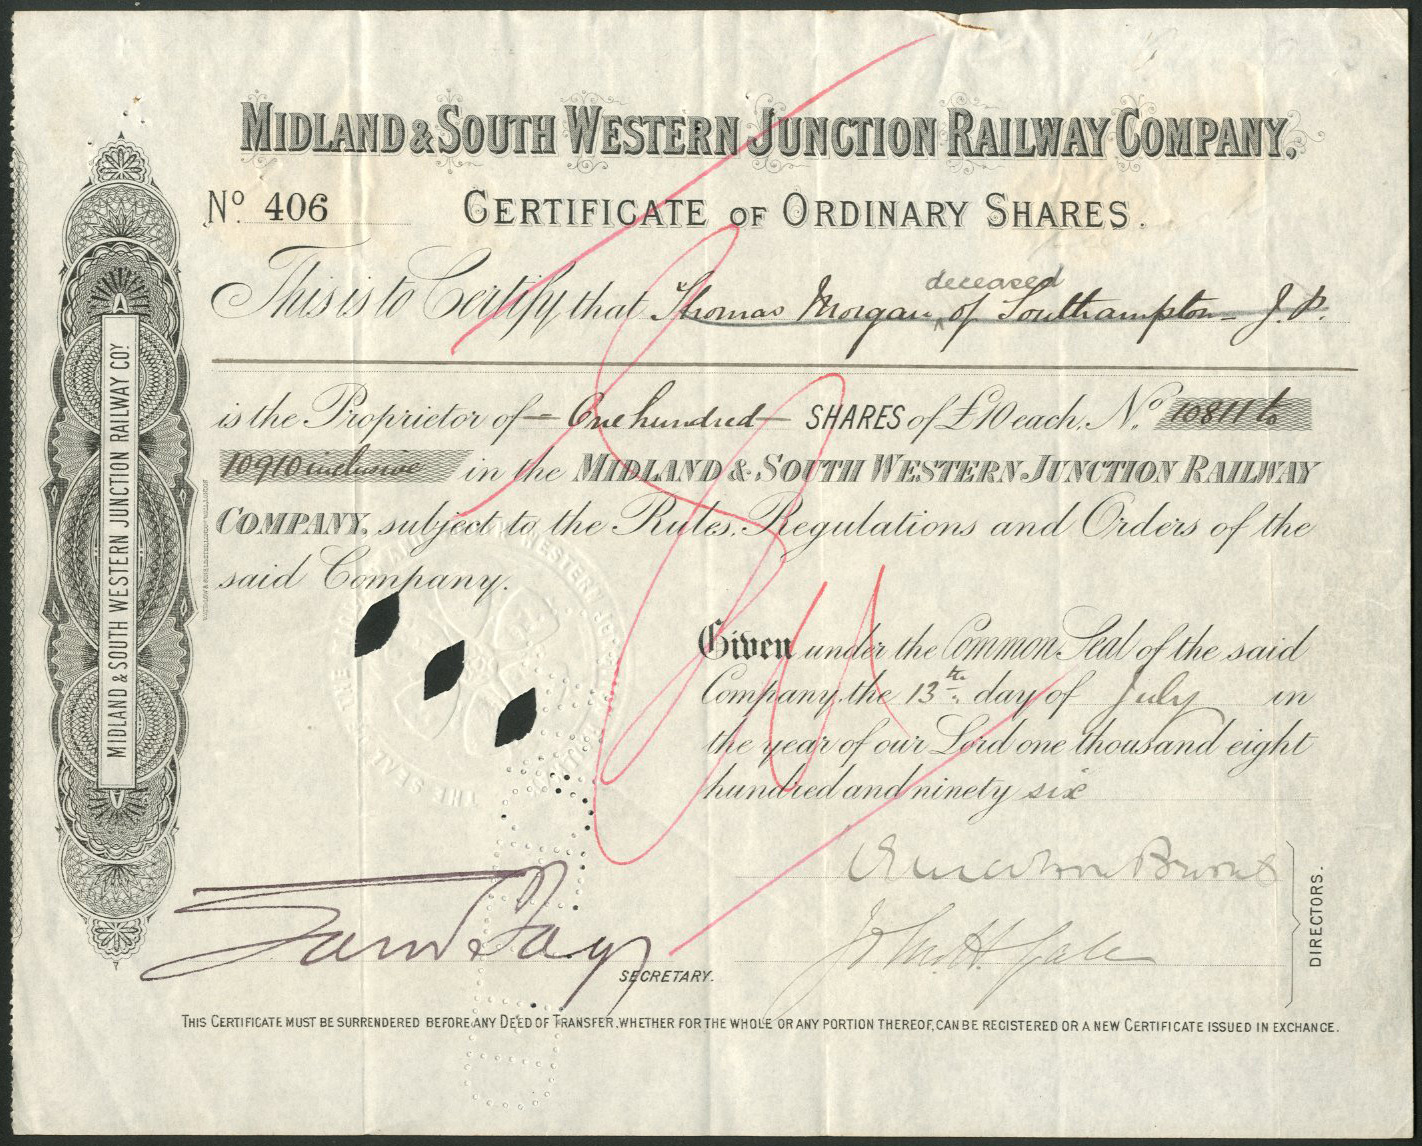 MIDLAND & SOUTH WESTERN JUNCTION RAILWAY COMPANY,
No 406
CERTIFICATE OF ORDINARY SHARES.
deceased
This is to Certify that Thomas Morgan ^ of Southampton J.P.
is the Proprietor of - One hundred - SHARES of £10 each, No 10811 to
10910 inclusive in the MIDLAND & SOUTH WESTERN JUNCTION RAILWAY
COMPANY, subject to the Rules, Regulations and Orders of the
said Company.
Given under the Common Seal of the said
Company, the 13th day of July in
the year of our Lord one thousand eight
hundred and ninety six
John H. Gale
DIRECTORS.
Sam Fay
SECRETARY.
THIS CERTIFICATE MUST BE SURRENDERED BEFORE ANY DEED OF TRANSFER, WHETHER FOR THE WHOLE OR ANY PORTION THEREOF, CAN BE REGISTERED OR A NEW CERTIFICATE ISSUED IN EXCHANGE.
MIDLAND & SOUTH WESTERN JUNCTION RAILWAY COY.
THE SEAL OF THE MIDLAND AND SOUTH WESTERN JUNCTION RAILWAY